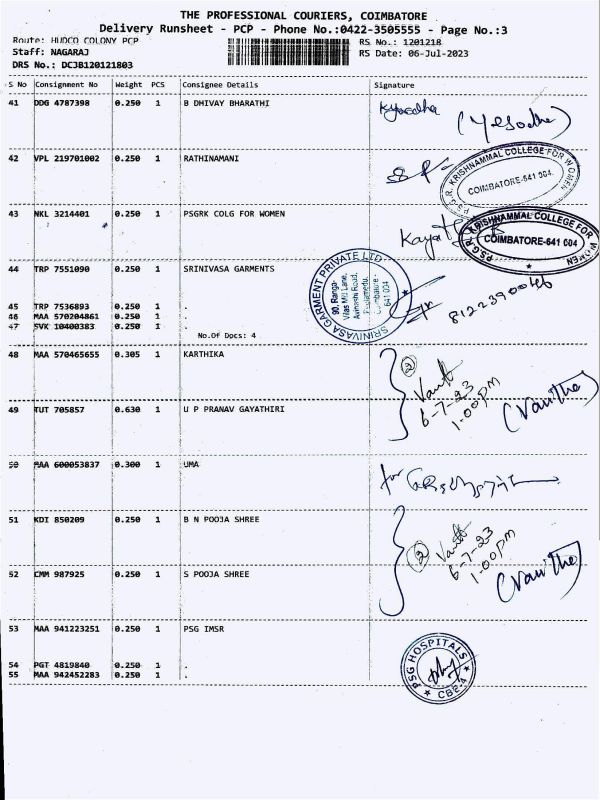 THE PROFESSIONAL COURIERS, COIMBATORE
Delivery Runsheet - PCP - Phone No.:0422-3505555 - Page No.:3
Route: HUDCO COLONY PCP
RS No.: 1201218
Staff: NAGARAJ
RS Date: 06-Jul-2023
DRS No.: DCJB120121803
S No Consignment No Weight PCS Consignee Details Signature
41 DDG 4787398 0.250 1 B DHIVAY BHARATHI
(Yesodha)
42 VPL 219701002 0.250 1 RATHINAMANI
P.S.G.R. KRISHNAMMAL COLLEGE FOR WOMEN
COIMBATORE-641 004.
43 NKL 3214401 0.250 1 PSGRK COLG FOR WOMEN
P.S.G.R. KRISHNAMMAL COLLEGE FOR WOMEN
COIMBATORE-641 004
44 TRP 7551090 0.250 1 SRINIVASA GARMENTS
SRINIVASA GARMENT PRIVATE LTD
90, Ranga
Vilas Mill Lane,
Avinashi Road,
Peelamedu,
Coimbatore -
641 004
45 TRP 7536893 0.250 1 .
46 MAA 570204861 0.250 1 .
47 SVK 10400383 0.250 1 .
No.Of Docs: 4
48 MAA 570465655 0.305 1 KARTHIKA
2
6-7-23
1.00 PM
(Vanitha)
49 TUT 705857 0.630 1 U P PRANAV GAYATHIRI
50 MAA 600053837 0.300 1 UMA
for
51 KDI 850209 0.250 1 B N POOJA SHREE
2
6-7-23
1.00 PM
(Vanitha)
52 CMM 987925 0.250 1 S POOJA SHREE
53 MAA 941223251 0.250 1 PSG IMSR
PSG HOSPITALS
CBE-4
54 PGT 4819840 0.250 1 .
55 MAA 942452283 0.250 1 .